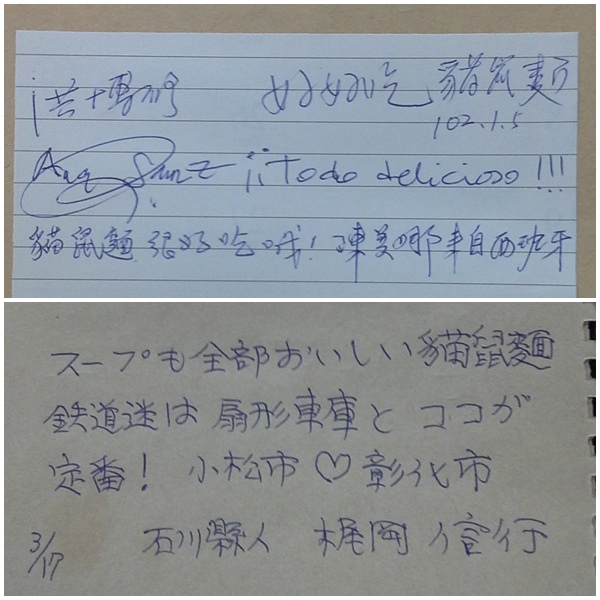 洪博修 好好吃 貓鼠麵
102.1.5
Ana Sanz ¡¡Todo delicioso!!!
貓鼠麵 很好吃哦! 陳美娜 來自西班牙
スープも全部おいしい貓鼠麵
鉄道迷は扇形車庫とココが
定番! 小松市♡彰化市
3/17 石川縣人 梶岡 信行